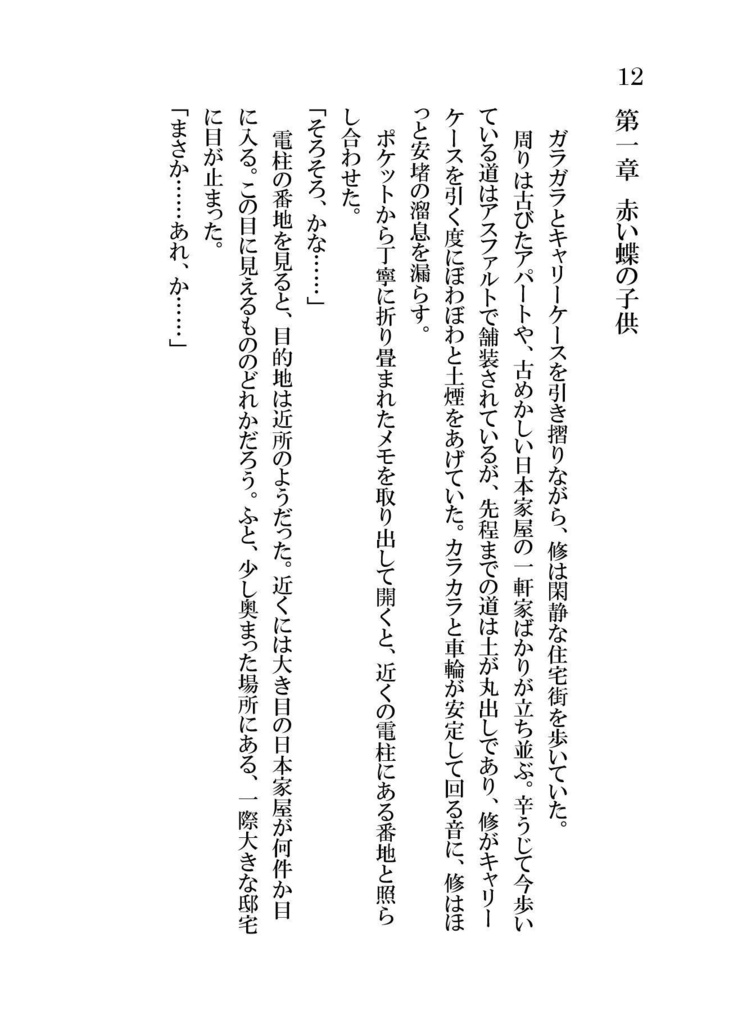 12
第一章　赤い蝶の子供
　ガラガラとキャリーケースを引き摺りながら、修は閑静な住宅街を歩いていた。
　周りは古びたアパートや、古めかしい日本家屋の一軒家ばかりが立ち並ぶ。辛うじて今歩い
ている道はアスファルトで舗装されているが、先程までの道は土が丸出しであり、修がキャリー
ケースを引く度にぼわぼわと土煙をあげていた。カラカラと車輪が安定して回る音に、修はほ
っと安堵の溜息を漏らす。
　ポケットから丁寧に折り畳まれたメモを取り出して開くと、近くの電柱にある番地と照ら
し合わせた。
「そろそろ、かな……」
　電柱の番地を見ると、目的地は近所のようだった。近くには大き目の日本家屋が何件か目
に入る。この目に見えるもののどれかだろう。ふと、少し奥まった場所にある、一際大きな邸宅
に目が止まった。
「まさか……あれ、か……」